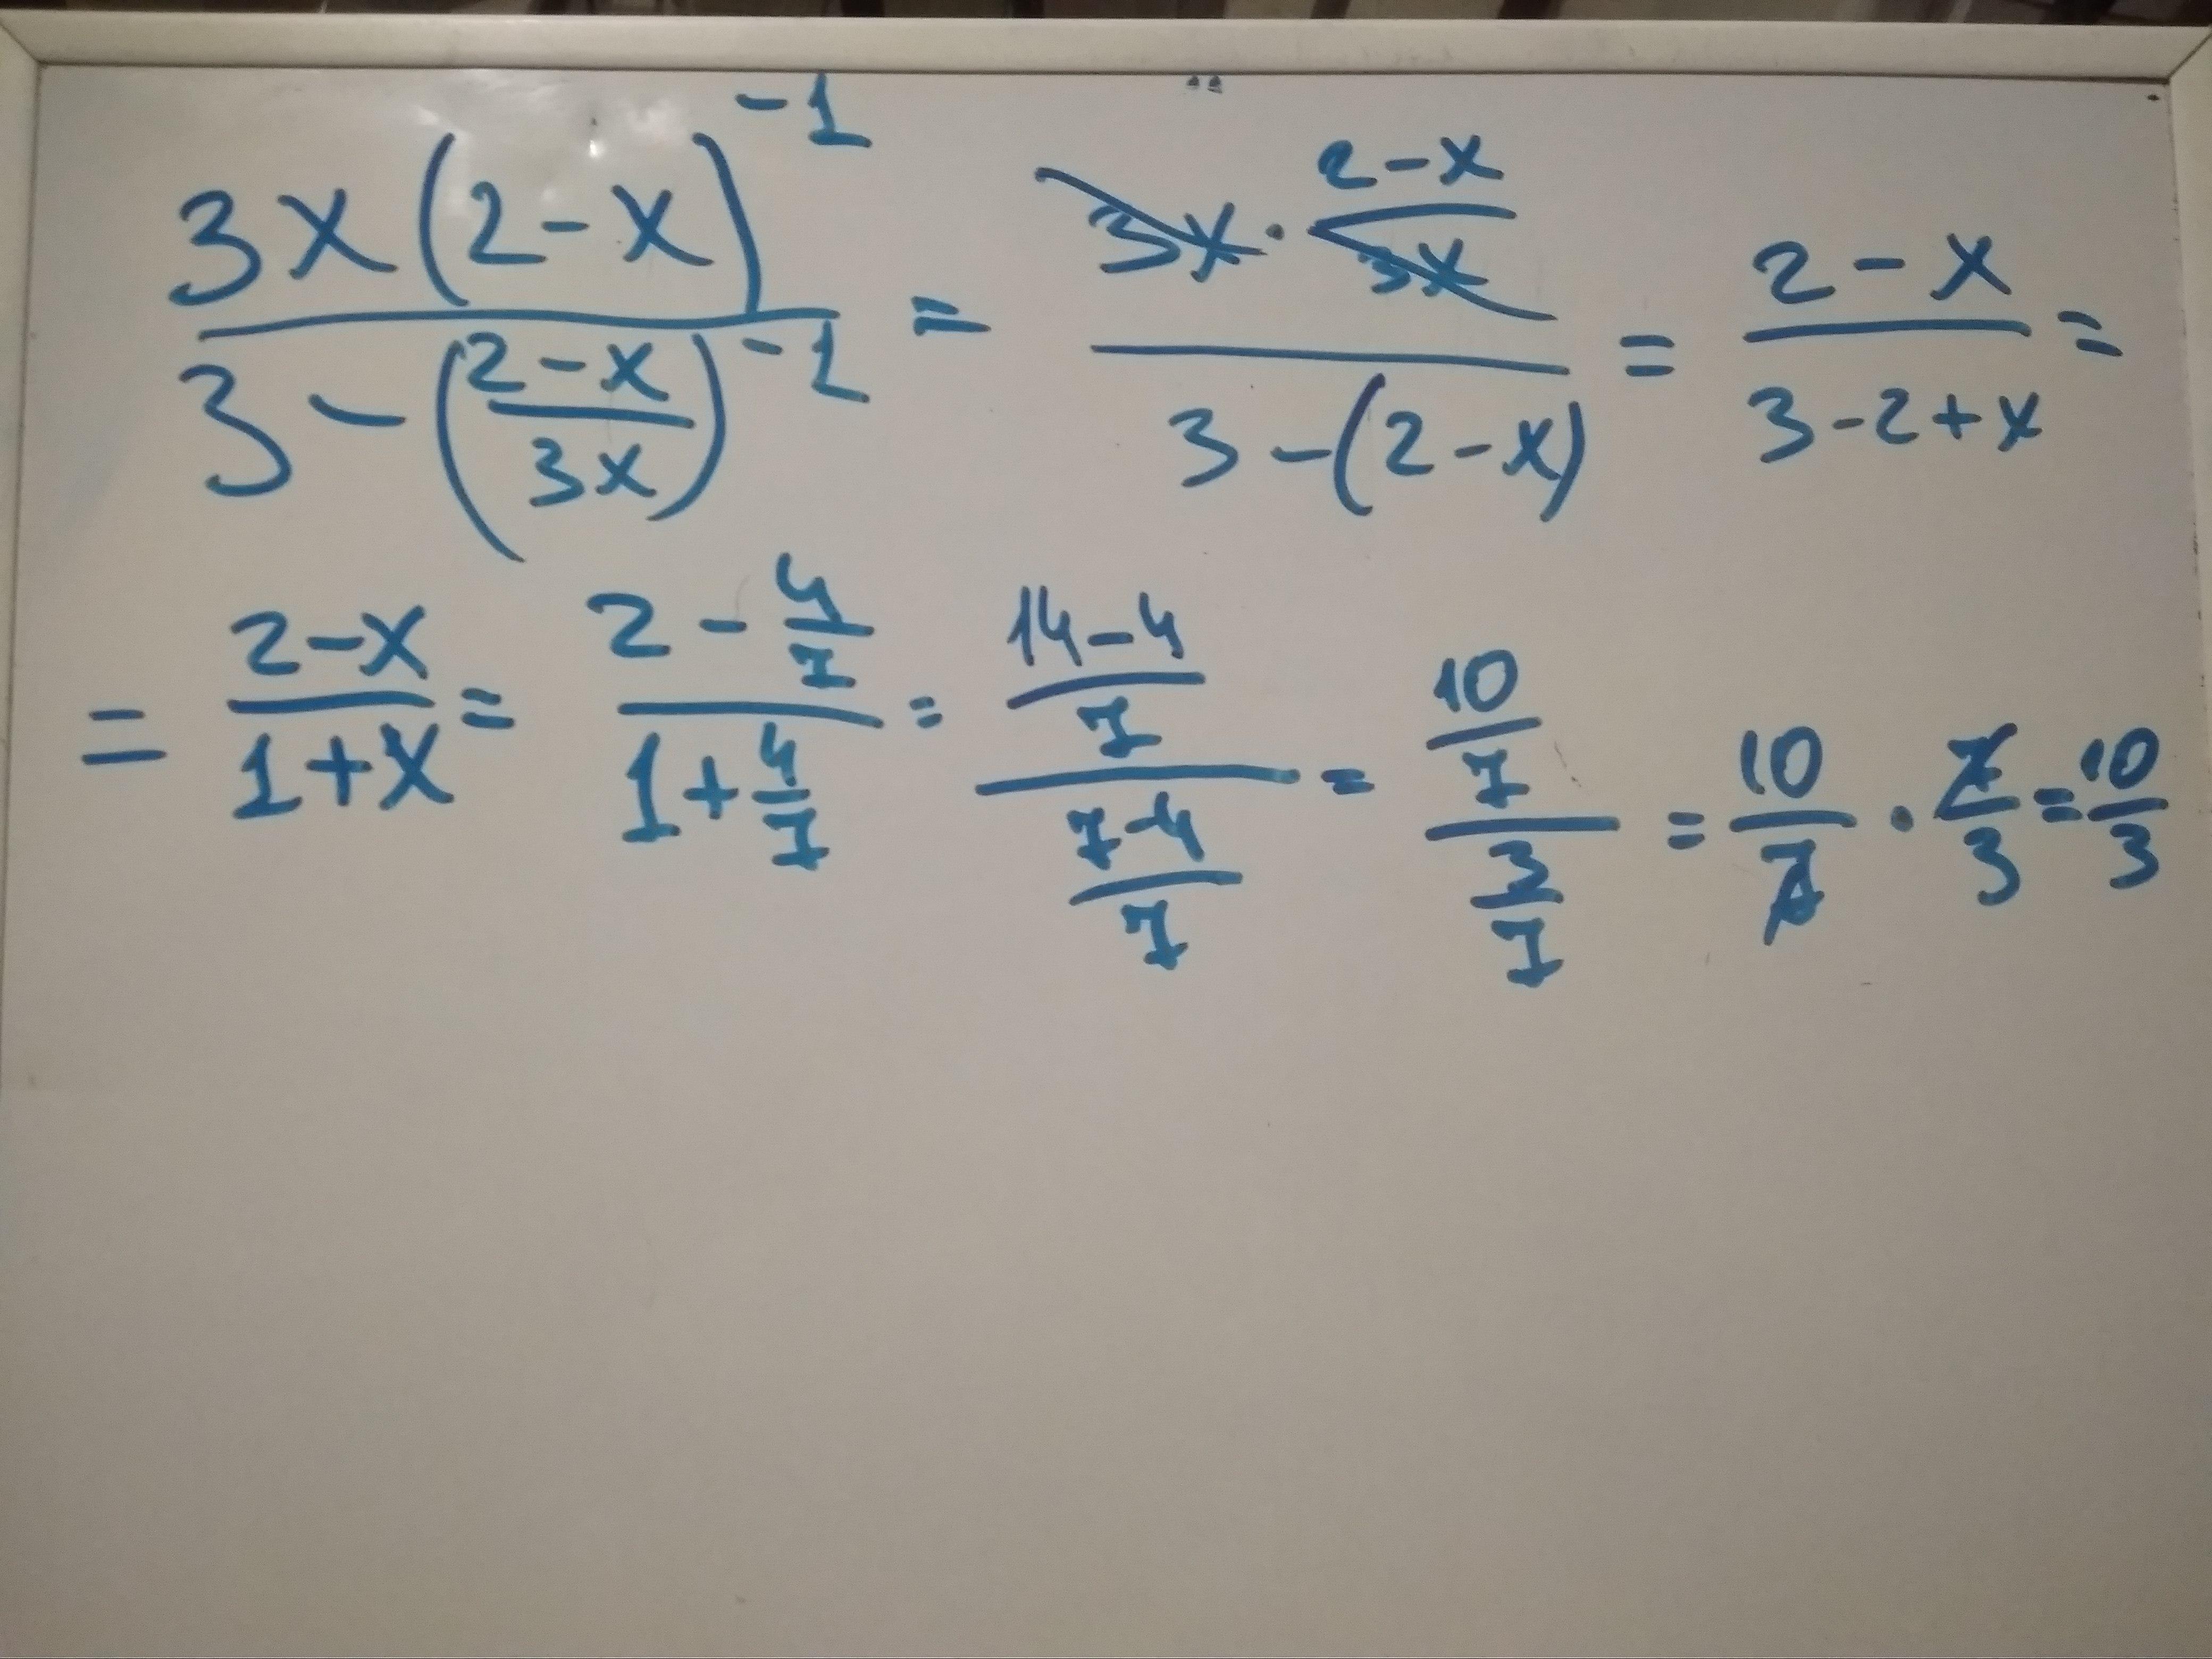 3x(2-x)^-1 / (3 - ((2-x)/(3x))^-1) = (3x · (2-x)/(3x)) / (3-(2-x)) = (2-x)/(3-2+x) =
= (2-x)/(1+x) = (2 - 4/7)/(1 + 4/7) = ((14-4)/7)/((7-4)/7) = (10/7)/(3/7) = 10/7 · 7/3 = 10/3